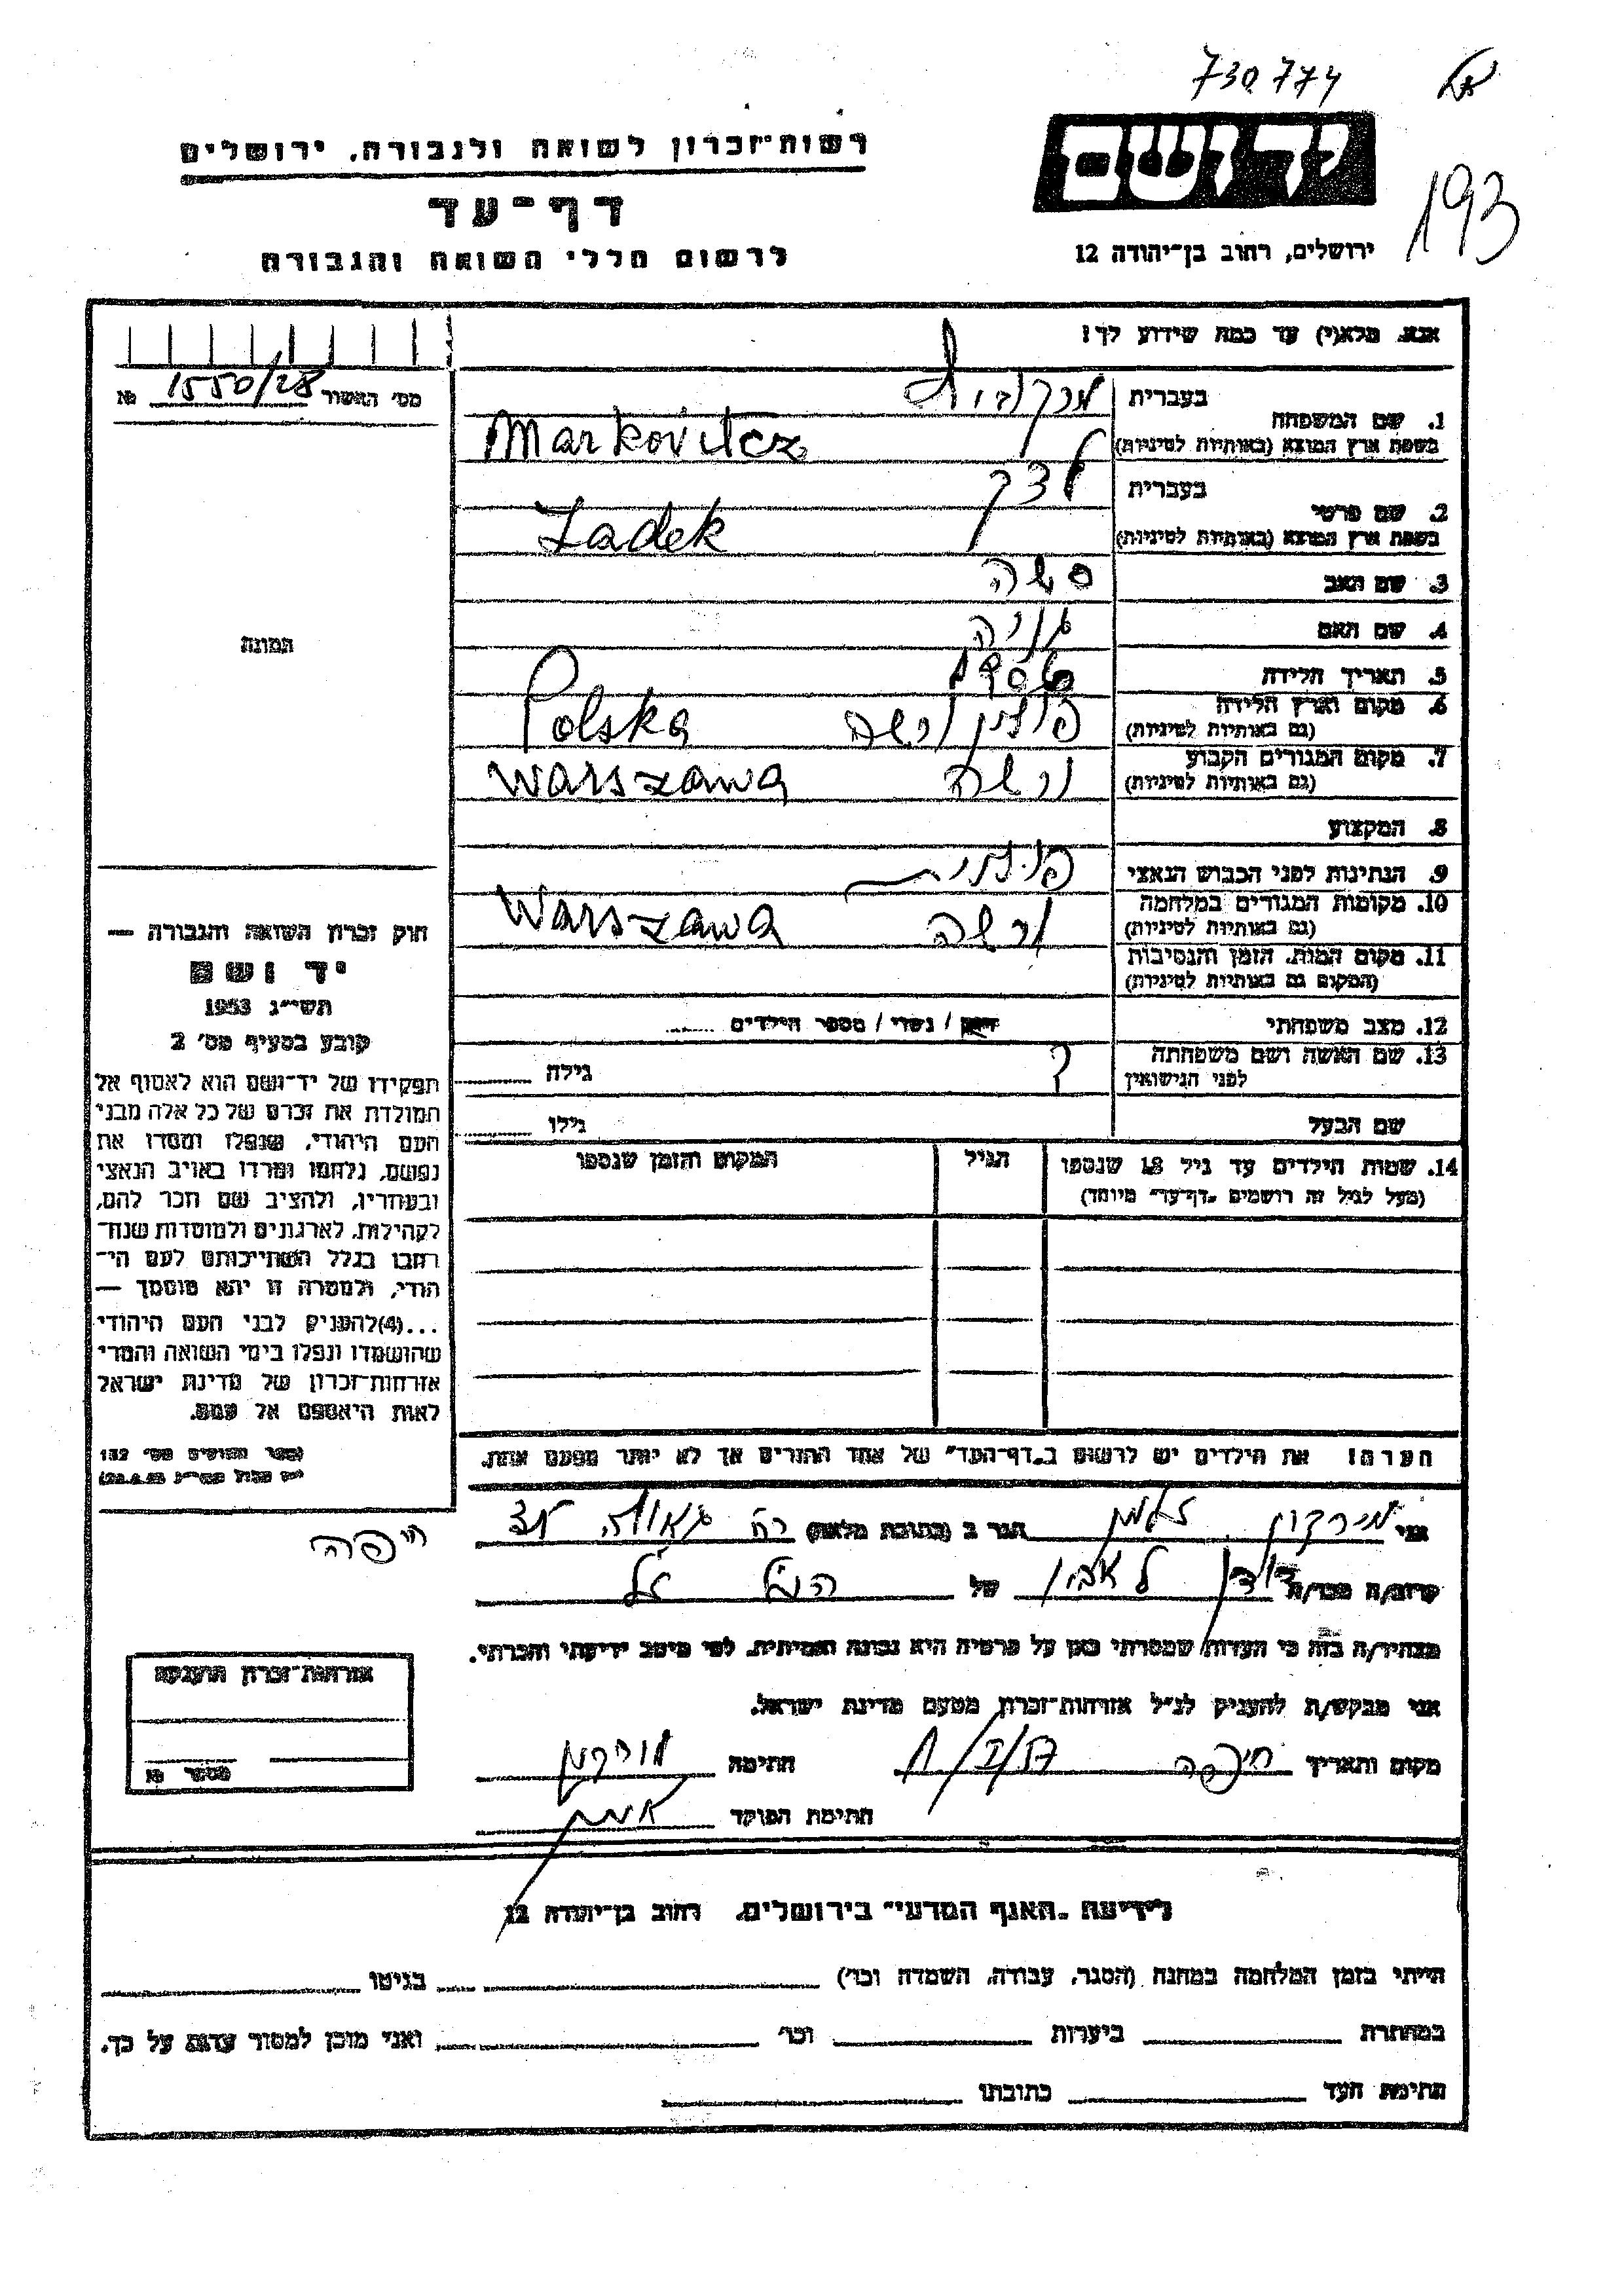 730774
193
יד ושם
ירושלים, רחוב בן־יהודה 12
רשות־זכרון לשואה ולגבורה, ירושלים
דף־עד
לרשום חללי השואה והגבורה
אנא, מלא(י) עד כמה שידוע לך!
מס׳ האשור 1550/28 №
בעברית מרקוביץ
1. שם המשפחה
בשפת ארץ המוצא (באותיות לטיניות) Markovitcz
בעברית
2. שם פרטי
בשפת ארץ המוצא (באותיות לטיניות) Zadek
3. שם האב
4. שם האם
5. תאריך הלידה
6. מקום וארץ הלידה פולין ורשה Polska
(גם באותיות לטיניות)
7. מקום המגורים הקבוע ורשה Warszawa
(גם באותיות לטיניות)
8. המקצוע
9. הנתינות לפני הכבוש הנאצי פולנית
10. מקומות המגורים במלחמה ורשה Warszawa
(גם באותיות לטיניות)
11. מקום המות, הזמן והנסיבות
(המקום גם באותיות לטיניות)
12. מצב משפחתי רווק / נשוי / מספר הילדים
13. שם האשה ושם משפחתה
לפני הנישואין גילה
שם הבעל גילו
14. שמות הילדים עד גיל 18 שנספו הגיל המקום והזמן שנספו
(מעל לגיל זה רושמים „דף־עד״ מיוחד)
הערה! את הילדים יש לרשום ב„דף־העד״ של אחד ההורים אך לא יותר מפעם אחת.
תמונה
חוק זכרון השואה והגבורה —
יד ושם
תשי״ג 1953
קובע בסעיף מס׳ 2
תפקידו של יד־ושם הוא לאסוף אל
המולדת את זכרם של כל אלה מבני
העם היהודי, שנפלו ומסרו את
נפשם, נלחמו ומרדו באויב הנאצי
ובעוזריו, ולהציב שם וזכר להם,
לקהילות, לארגונים ולמוסדות שנח־
רבו בגלל השתייכותם לעם הי־
הודי, ולמטרה זו יהא מוסמך —
...(4) להעניק לבני העם היהודי
שהושמדו ונפלו בימי השואה והמרי
אזרחות־זכרון של מדינת ישראל
לאות היאספם אל עמם.
(ספר החוקים מס׳ 132
אני זלמן הגר ב (כתובת מלאה) רח גאולה
חיפה
קרוב/ה מכר/ה של הנ״ל
מצהיר/ה בזה כי העדות שמסרתי כאן על פרטיה היא נכונה ואמיתית, לפי מיטב ידיעתי והכרתי.
אני מבקש/ת להעניק לנ״ל אזרחות־זכרון מטעם מדינת ישראל.
מקום ותאריך חיפה חתימה
חתימת הפוקד
אזרחות־זכרון הוענקה
מספר №
לידיעת „האגף המדעי״ בירושלים, רחוב בן־יהודה 12
הייתי בזמן המלחמה במחנה (הסגר, עבודה, השמדה וכו׳) בגיטו
במחתרת ביערות וכו׳ ואני מוכן למסור עדות על כך.
חתימת העד כתובתו